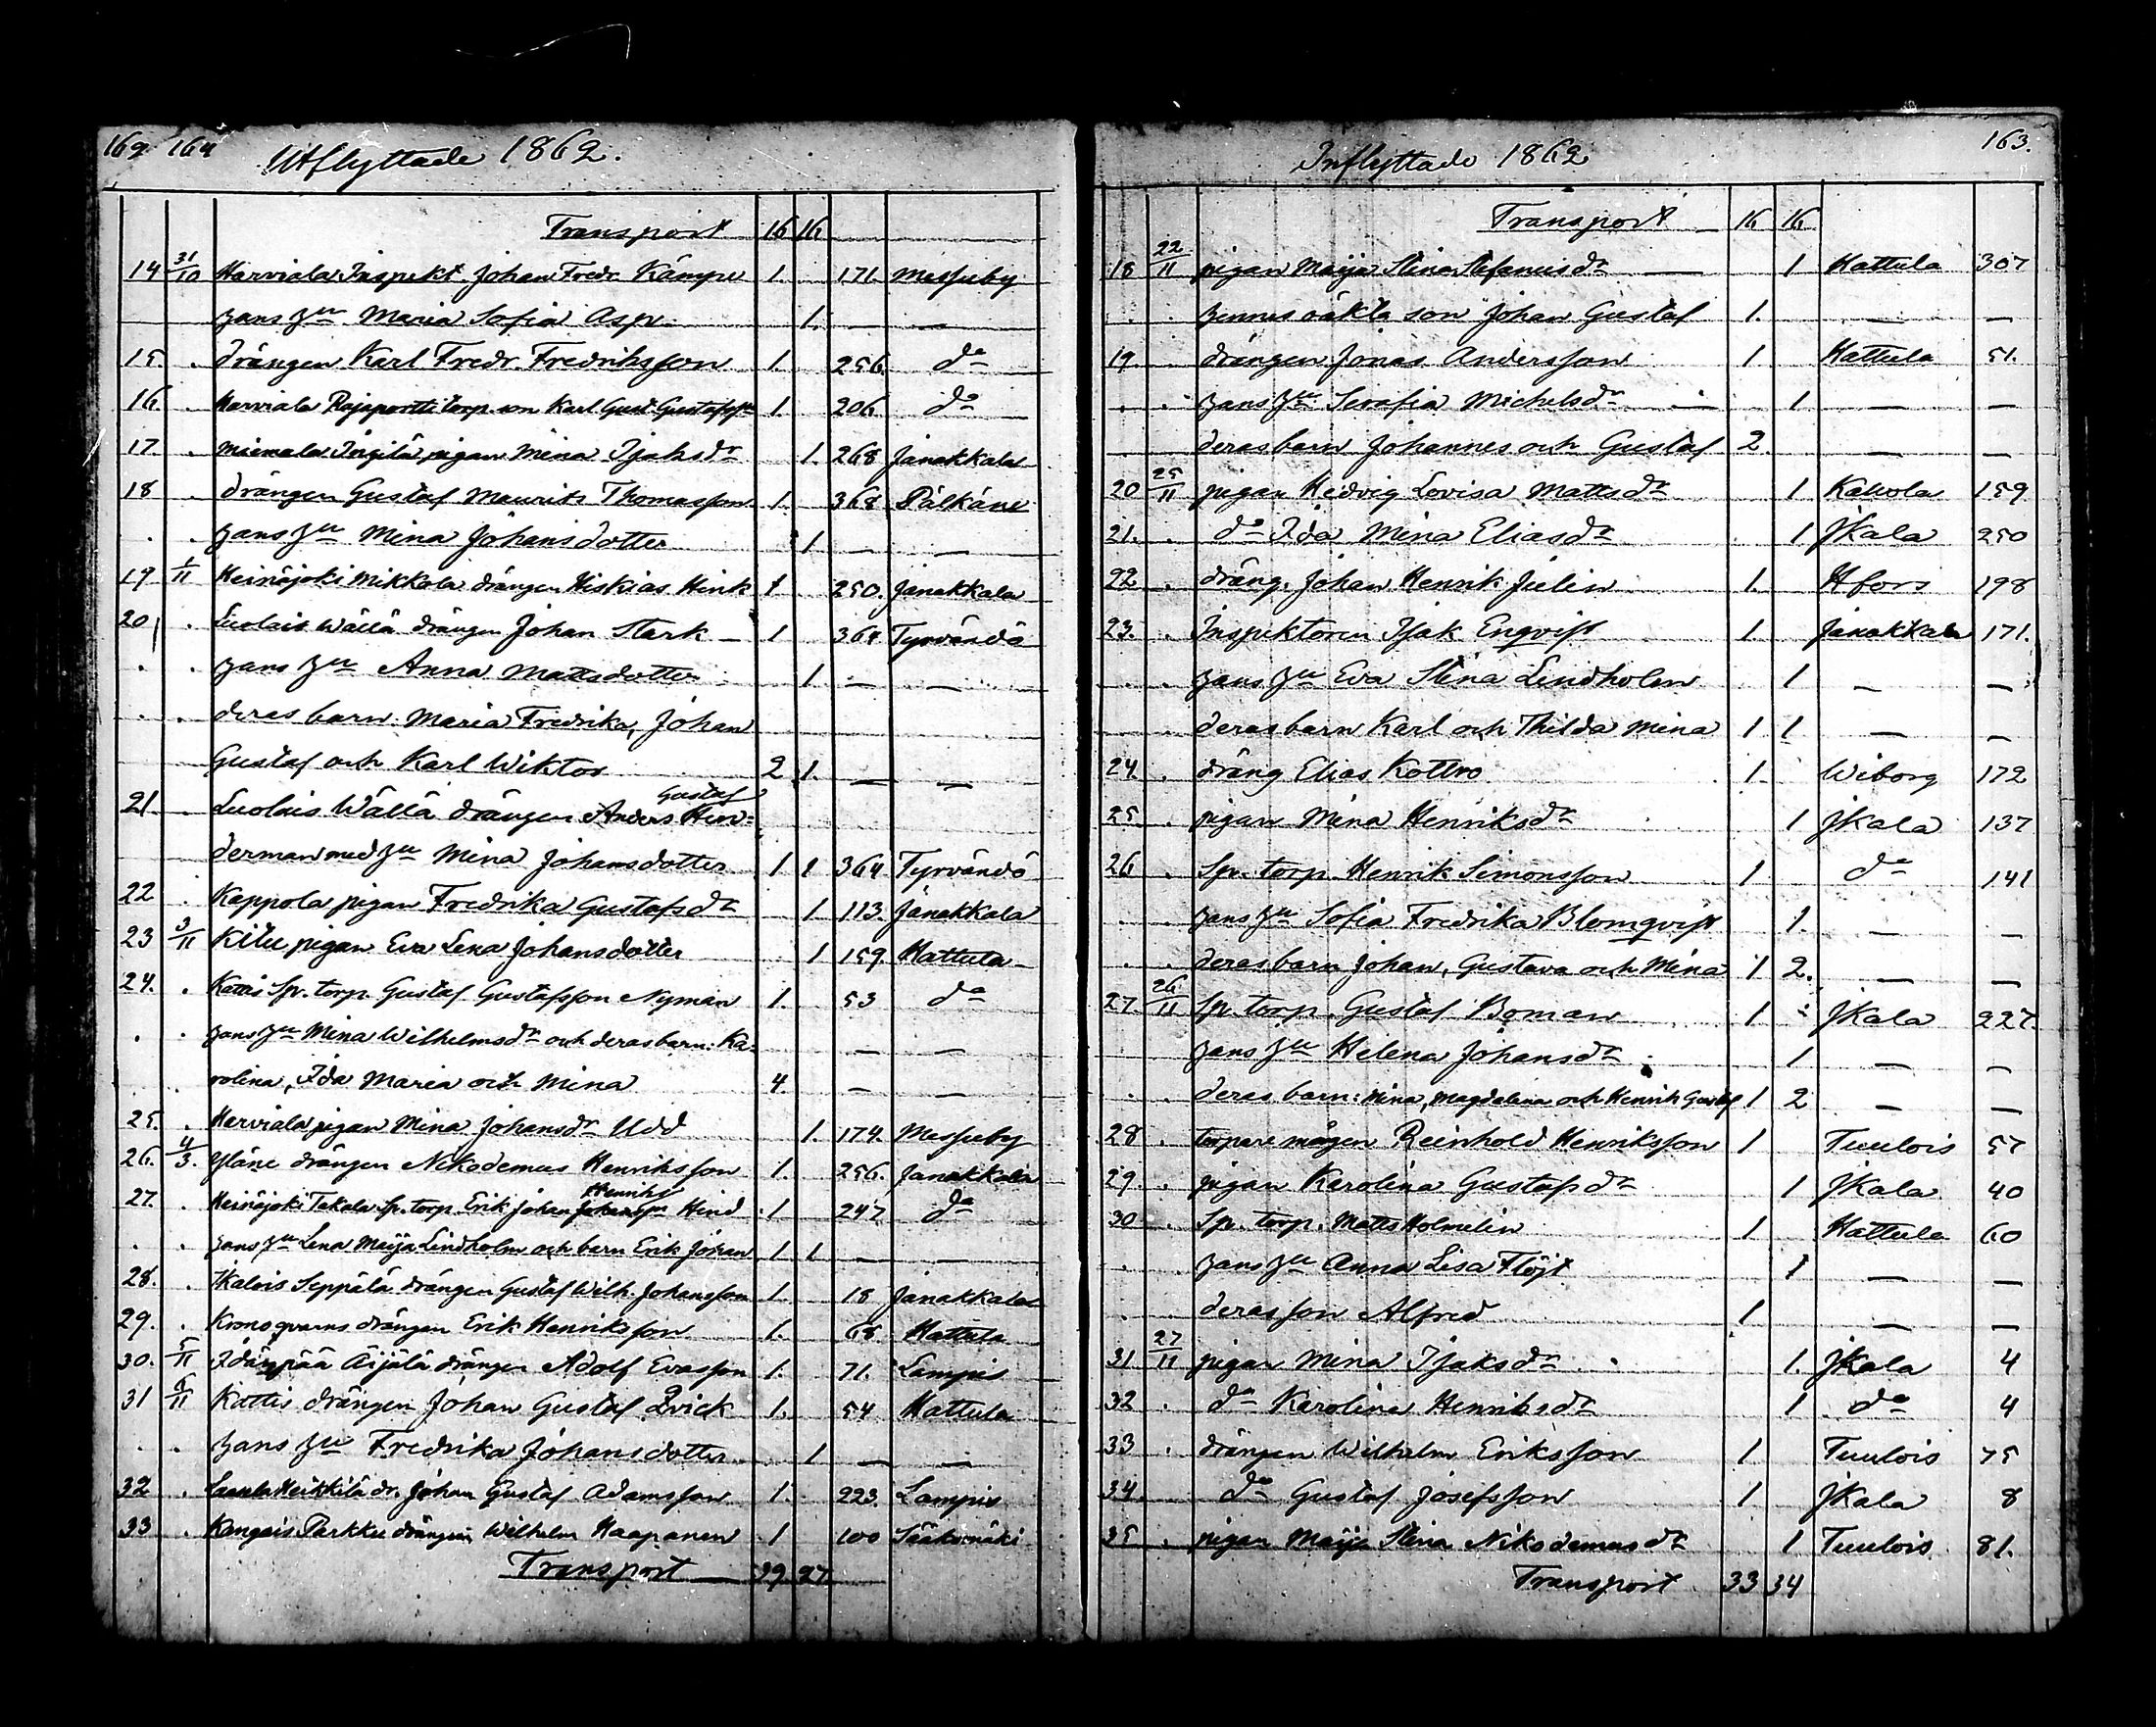 162. 164
Utflyttade 1862.
Transport 16 16
14 31/10 Harviala Inspekt. Johan Fredr. Kämpe 1. 171. Messuby
hans hu Maria Sofia Asp. 1. — —
15. . drängen Karl Fredr. Fredriksson 1. 256. do
16. . Harviala Rajaportti torp. son Karl Gust. Gustafss. 1. 206 do
17. . Miemala Jirgilä pigan Mina Isaksdr 1. 268 Janakkala
18 . drängen Gustaf Maurits Thomasson 1. 368 Pälkäne
. . hans hu Mina Johansdotter 1 — —
19 1/11 Heinäjoki Mikkola drängen Hiskias Hink 1 250. Janakkala
20 . Luolais Wällä drängen Johan Stark — 1 364 Tyrvändö
. . hans hu Anna Mattsdotter 1. — —
. . deras barn. Maria Fredrika, Johan
Gustaf och Karl Wiktor 2 1. — —
21. . Luolais Wällä drängen Anders Gustaf Hin-
derman med hu Mina Johansdotter 1 1 364 Tyrvändö
22 . Kappola pigan Fredrika Gustafsdr 1 113. Janakkala
23 3/11 Kitu pigan Eva Lena Johansdotter 1 159. Hattula
24. . Kattis Sp. torp. Gustaf Gustafsson Nyman 1. 53 do
. . hans hu Mina Wilhelmsdr och deras barn: Ka- — —
. rolina, Ida Maria och Mina 4. — —
25. . Harviala pigan Mina Johansdr Udd 1. 174. Messuby
26. 4/3. Yläne drängen Nikodemus Henriksson 1. 256. Janakkala
27. . Heinäjoki Takala Sp. torp. Erik Johan Henriks Hind 1 247 do
. . hans hu Lena Maija Lindholm och barn Erik Johan 1 1 — —
28. . Ikalois Seppälä drängen Gustaf Wilh. Johansson 1. 18 Janakkala
29. . Kronoqvarns drängen Erik Henriksson 1. 65 Hattula
30. 5/11 Idänpää Äijälä drängen Adolf Evasson 1. 71. Lampis
31 6/11 Kattis drängen Johan Gustaf Qvick 1. 54 Hattula
. . hans hu Fredrika Johansdotter 1 — —
32 . Heikkilä dr. Johan Gustaf Adamsson 1. 223. Lampis
33 . Kangais Parkku drängen Wilhelm Haapanen 1 100 Sääksmäki
Transport — 39 27
163.
Inflyttade 1862
Transport 16 16
18 22/11 pigan Maija Stina Stefanusdr — 1 Hattula 307
. . hennes oäkta son Johan Gustaf 1. — —
19. . drängen Jonas Andersson 1 Hattula 51.
. . hans hu Serafia Michelsdr — 1 — —
. deras barn Johannes och Gustaf 2. — —
20 25/11 pigan Hedvig Lovisa Mattsdr 1 Kalvola 159
21. . do Ida Mina Eliasdr 1 JKala 250
22 . dräng. Johan Henrik Julin 1. Hfors 198
23. . Inspektoren Isak Enqvist 1. Janakkala 171.
. . hans hu Eva Stina Lindholm 1 — —
deras barn Karl och Thilda Mina 1 1 — —
24. . dräng Elias Kottro 1. Wiborg 172
25 . pigan Mina Henriksdr 1 JKala 137
26 . Sp. torp. Henrik Simonsson 1 do 141
. . hans hu Sofia Fredrika Blomqvist 1. — —
. . deras barn Johan, Gustava och Mina 1 2. — —
27. 26/11 Sp. torp. Gustaf Boman 1 JKala 227.
hans hu Helena Johansdr 1 — —
. deras barn: Mina, Magdalena och Henrik Gustaf 1 2 — —
28 . torpare mågen Reinhold Henriksson 1 Tuulois 57
29. . pigan Karolina Gustafsdr 1 JKala 40
30 . Sp. torp. Matts Holmelin 1 Hattula 60
. hans hu Anna Lisa Flöjt 1 — —
. deras son Alfred 1 — —
31 27/11 pigan Mina Isaksdr 1. JKala 4
32 . do Karolina Henriksdr 1 do 4
33 . drängen Wilhelm Eriksson 1 Tuulois 75
34. do Gustaf Josefsson 1 JKala 8
35 . pigan Maija Stina Nikodemusdr 1 Tuulois 81.
Transport 33 34